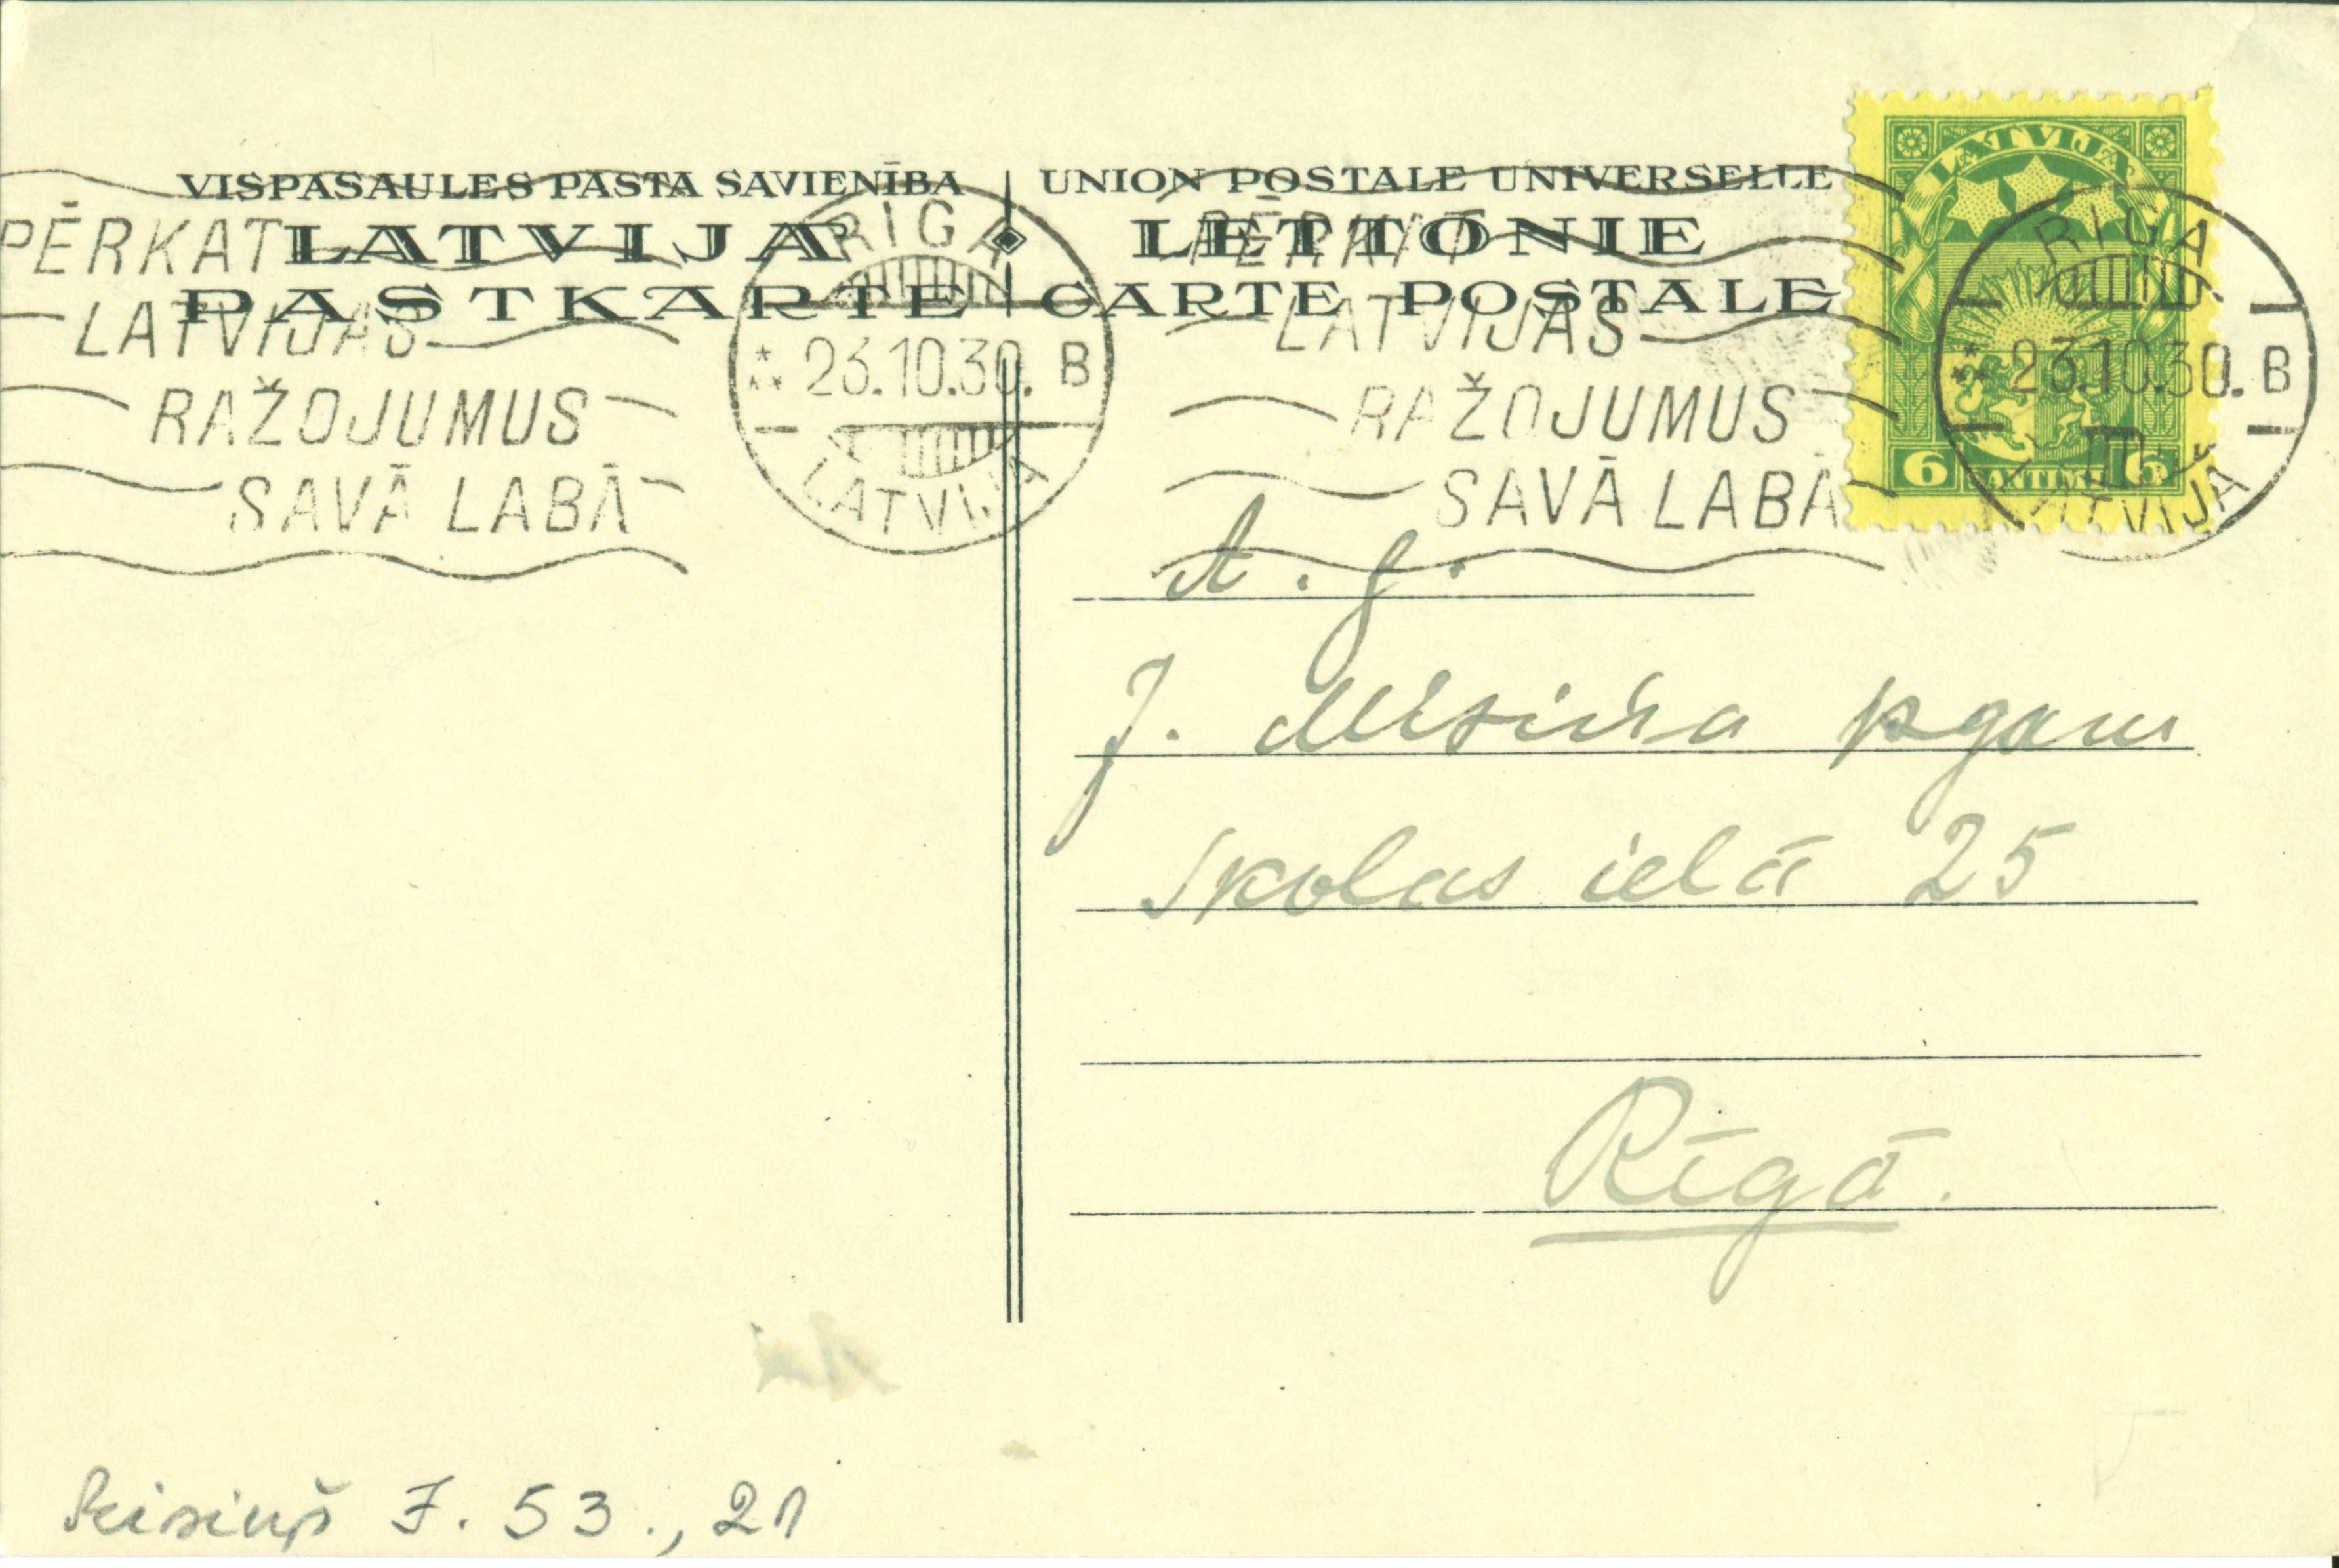 VISPASAULES PASTA SAVIENĪBA
LATVIJA
PASTKARTE
UNION POSTALE UNIVERSELLE
LETTONIE
CARTE POSTALE
PĒRKAT
LATVIJAS
RAŽOJUMUS
SAVĀ LABĀ
RIGA
23.10.30. B
LATVIJA
PĒRKAT
LATVIJAS
RAŽOJUMUS
SAVĀ LABĀ
LATVIJA
6 SANTIMI 6
RIGA
23.10.30. B
LATVIJA
A. g.
J. Misiņa kgam
Skolas ielā 25
Rīgā.
Misiņš J. 53., 21